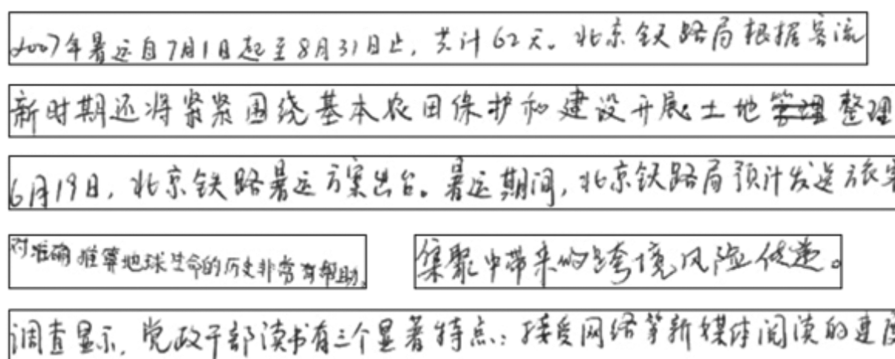 2007年暑运自7月1日起至8月31日止，共计62天。北京铁路局根据客流
新时期还将紧紧围绕基本农田保护和建设开展土地管理整理
6月19日，北京铁路暑运方案出台。暑运期间，北京铁路局预计发送旅客
对准确推算地球生命的历史非常有帮助。
集聚中带来的跨境风险传递。
调查显示，党政干部读书有三个显著特点：接受网络等新媒体阅读的速度